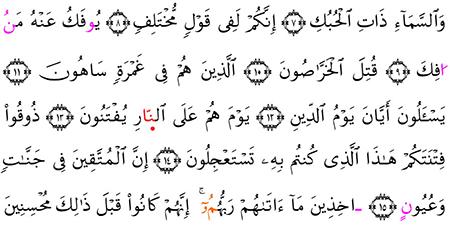 وَالسَّمَآءِ ذَاتِ الْحُبُكِ ﴿٧﴾ إِنَّكُمْ لَفِى قَوْلٍ مُّخْتَلِفٍ ﴿٨﴾ يُوفَكُ عَنْهُ مَنُ
افِكَ ﴿٩﴾ قُتِلَ الْخَرَّاصُونَ ﴿١٠﴾ الَّذِينَ هُمْ فِى غَمْرَةٍ سَاهُونَ ﴿١١﴾
يَسْـَٔلُونَ أَيَّانَ يَوْمُ الدِّينِ ﴿١٢﴾ يَوْمَ هُمْ عَلَى النَّارِ يُفْتَنُونَ ﴿١٣﴾ ذُوقُوا۟
فِتْنَتَكُمْ هَـٰذَا الَّذِى كُنتُم بِهِۦ تَسْتَعْجِلُونَ ﴿١٤﴾ إِنَّ الْمُتَّقِينَ فِى جَنَّـٰتٍ
وَعُيُونٍ ﴿١٥﴾ ـاخِذِينَ مَآ ءَاتَىٰهُمْ رَبُّهُمُۥٓ ۚ إِنَّهُمْ كَانُوا۟ قَبْلَ ذَٰلِكَ مُحْسِنِينَ